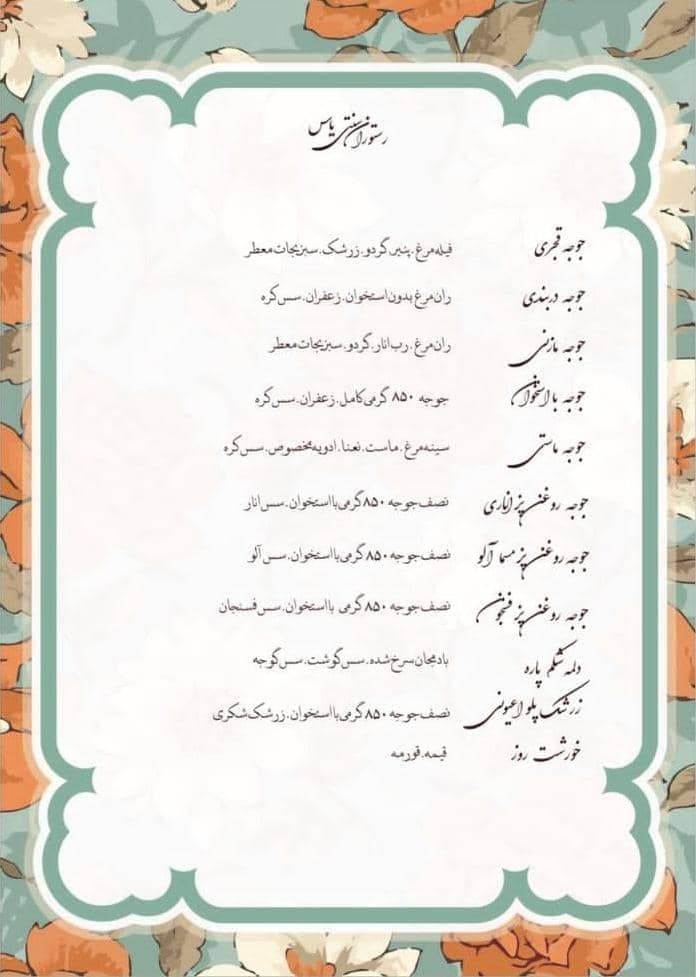 رستوران سنتی یاس
جوجه قجری فیله مرغ. پنیر. گردو. زرشک. سبزیجات معطر
جوجه دربندی ران مرغ بدون استخوان. زعفران. سس کره
جوجه مازنی ران مرغ. رب انار. گردو. سبزیجات معطر
جوجه با استخوان جوجه ۸۵۰ گرمی کامل. زعفران. سس کره
جوجه ماستی سینه مرغ. ماست. نعنا. ادویه مخصوص. سس کره
جوجه روغن پز اناری نصف جوجه ۸۵۰ گرمی با استخوان. سس انار
جوجه روغن پز مسما آلو نصف جوجه ۸۵۰ گرمی با استخوان. سس آلو
جوجه روغن پز فسنجون نصف جوجه ۸۵۰ گرمی با استخوان. سس فسنجان
دلمه شکم پاره بادمجان سرخ شده. سس گوشت. سس گوجه
زرشک پلو اعیونی نصف جوجه ۸۵۰ گرمی با استخوان. زرشک شکری
خورشت روز قیمه. قورمه